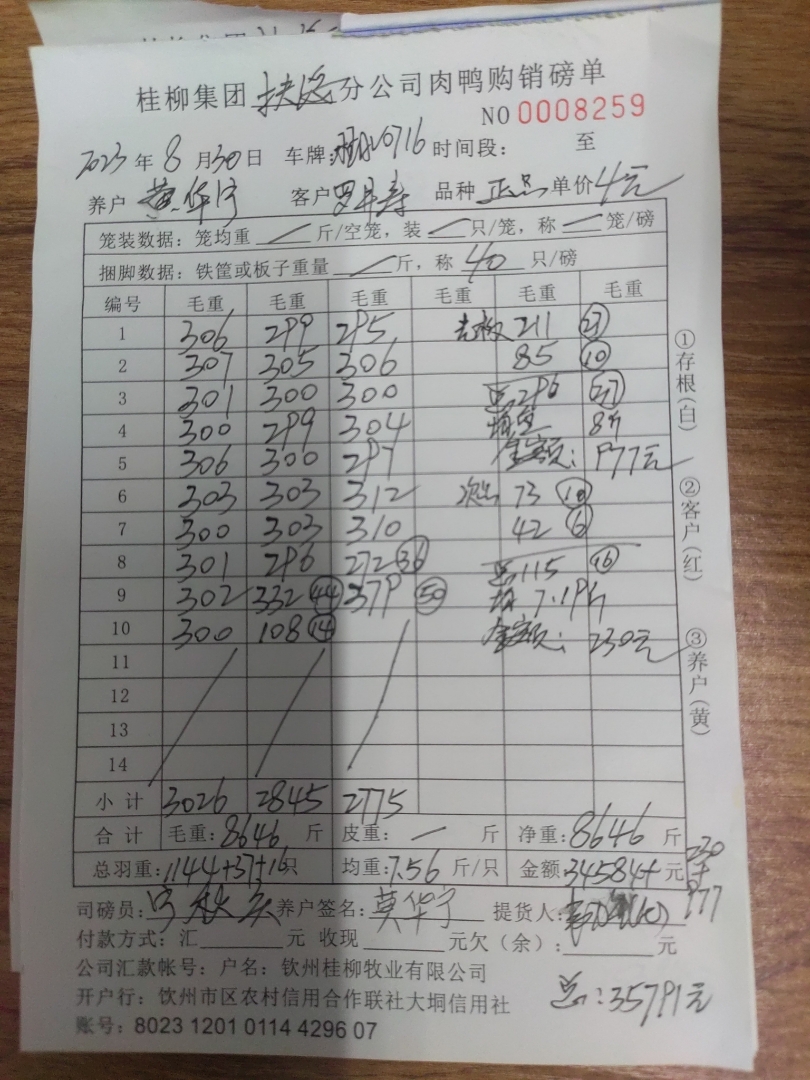 桂柳集团扶隆分公司肉鸭购销磅单
NO 0008259
2023年8月30日 车牌: 20716 时间段: 至
养户 莫华宇 客户 罗 寿 品种 正品 单价 4元
笼装数据：笼均重 / 斤/空笼，装 / 只/笼，称 / 笼/磅
捆脚数据：铁筐或板子重量 / 斤，称 40 只/磅
编号 毛重 毛重 毛重 毛重 毛重 毛重
1 306 299 295 211 27
2 307 305 306 85 10
3 301 300 300 总 296 37
4 300 299 304 填重 8斤
5 306 300 297 金额: 977元
6 303 303 312 次品 73 10
7 300 303 310 42 6
8 301 296 272 36 总 115 16
9 302 332 44 379 50 均 7.19斤
10 300 108 14 金额: 230元
11
12
13
14
小计 3026 2845 2775
合计 毛重: 8646 斤 皮重: — 斤 净重: 8646 斤
总羽重: 1144+37+16只 均重: 7.56 斤/只 金额 34584+ 元 230+977
司磅员: 养户签名: 莫华宇 提货人:
付款方式：汇 元 收现 元欠（余）: 元
公司汇款帐号：户名：钦州桂柳牧业有限公司
开户行：饮州市区农村信用合作联社大垌信用社
总: 35791元
账号: 8023 1201 0114 4296 07
①存根(白)
②客户(红)
③养户(黄)